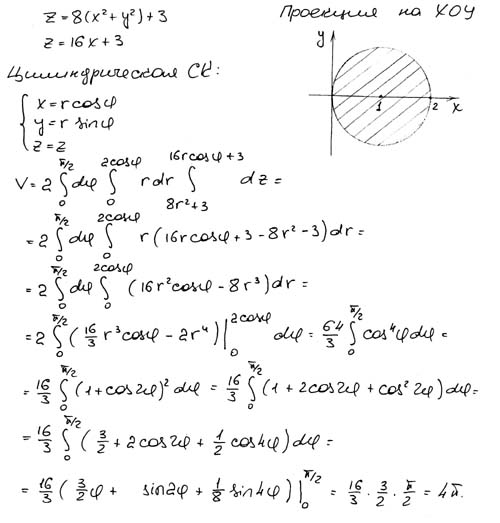 z = 8(x² + y²) + 3
z = 16x + 3
Проекция на XOY
y
1 2 x
Цилиндрическая СК:
{ x = r cosφ
y = r sinφ
z = z
V = 2 ∫₀^{π/2} dφ ∫₀^{2cosφ} r dr ∫_{8r²+3}^{16rcosφ+3} dz =
= 2 ∫₀^{π/2} dφ ∫₀^{2cosφ} r (16r cosφ + 3 − 8r² − 3) dr =
= 2 ∫₀^{π/2} dφ ∫₀^{2cosφ} (16r² cosφ − 8r³) dr =
= 2 ∫₀^{π/2} (16/3 r³ cosφ − 2r⁴) |₀^{2cosφ} dφ = 64/3 ∫₀^{π/2} cos⁴φ dφ =
= 16/3 ∫₀^{π/2} (1 + cos2φ)² dφ = 16/3 ∫₀^{π/2} (1 + 2cos2φ + cos² 2φ) dφ =
= 16/3 ∫₀^{π/2} (3/2 + 2cos2φ + 1/2 cos4φ) dφ =
= 16/3 (3/2 φ + sin2φ + 1/8 sin4φ) |₀^{π/2} = 16/3 · 3/2 · π/2 = 4π.